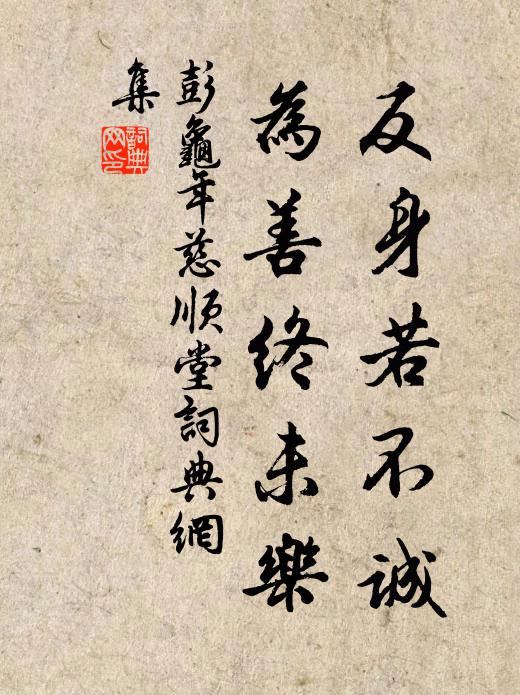 反身若不誠
為善終未樂
彭龜年慈順堂詞典網
集
詞典
网印